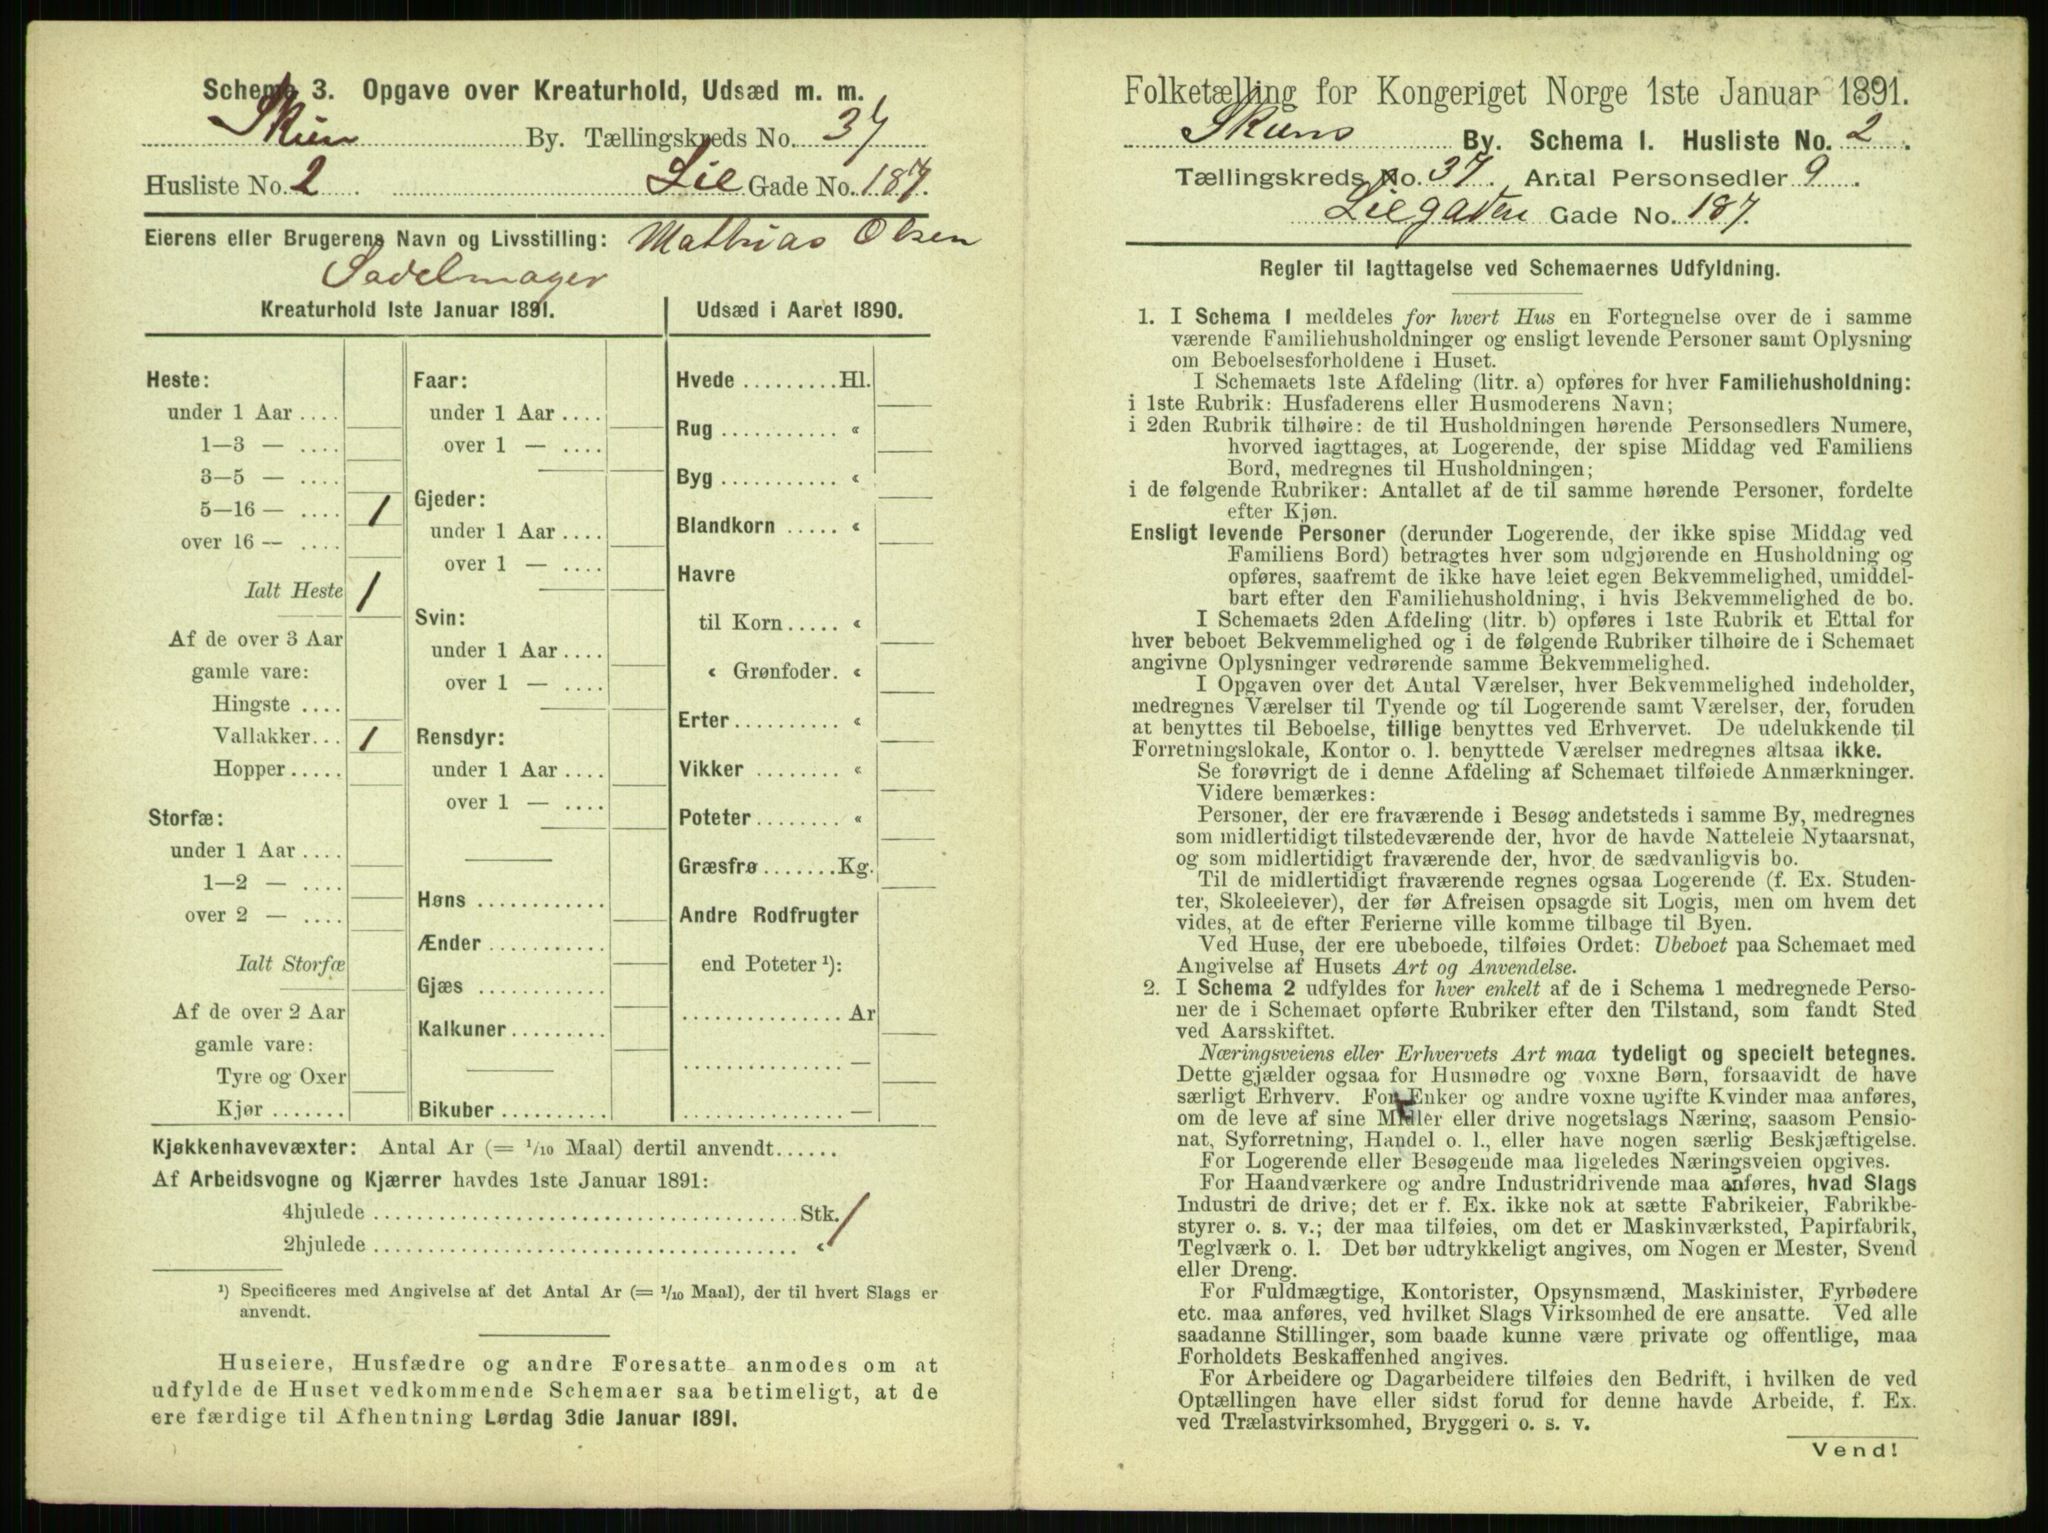 Schema 3. Opgave over Kreaturhold, Udsæd m. m.
Skien By. Tællingskreds No. 37
Husliste No. 2 Lie Gade No. 187.
Eierens eller Brugerens Navn og Livsstilling: Mathias Olsen
Sadelmager
Kreaturhold 1ste Januar 1891.
Heste:
under 1 Aar ....
1—3 — ....
3—5 — ....
5—16 — .... 1
over 16 — ....
Ialt Heste 1
Af de over 3 Aar
gamle vare:
Hingste ....
Vallakker... 1
Hopper.....
Storfæ:
under 1 Aar ....
1—2 — ....
over 2 — ....
Ialt Storfæ
Af de over 2 Aar
gamle vare:
Tyre og Oxer
Kjør .......
Faar:
under 1 Aar ....
over 1 — ....
Gjeder:
under 1 Aar ....
over 1 — ....
Svin:
under 1 Aar ....
over 1 — ....
Rensdyr:
under 1 Aar ....
over 1 — ....
Høns ............
Ænder ...........
Gjæs ............
Kalkuner.........
Bikuber ..........
Udsæd i Aaret 1890.
Hvede .........Hl.
Rug ........... «
Byg ........... «
Blandkorn ..... «
Havre
til Korn..... «
« Grønfoder. «
Erter.......... «
Vikker ........ «
Poteter........ «
Græsfrø .......Kg.
Andre Rodfrugter
end Poteter ¹):
...............Ar
............... —
............... —
Kjøkkenhavevæxter: Antal Ar (= 1/10 Maal) dertil anvendt......
Af Arbeidsvogne og Kjærrer havdes 1ste Januar 1891:
4hjulede ........................................Stk. 1
2hjulede ........................................ «
¹) Specificeres med Angivelse af det Antal Ar (= 1/10 Maal), der til hvert Slags er
anvendt.
Huseiere, Husfædre og andre Foresatte anmodes om at
udfylde de Huset vedkommende Schemaer saa betimeligt, at de
ere færdige til Afhentning Lørdag 3die Januar 1891.
Folketælling for Kongeriget Norge 1ste Januar 1891.
Skiens By. Schema 1. Husliste No. 2.
Tællingskreds No. 37. Antal Personsedler 9.
Liegaden Gade No. 187.
Regler til Iagttagelse ved Schemaernes Udfyldning.
1. I Schema 1 meddeles for hvert Hus en Fortegnelse over de i samme
værende Familiehusholdninger og ensligt levende Personer samt Oplysning
om Beboelsesforholdene i Huset.
I Schemaets 1ste Afdeling (litr. a) opføres for hver Familiehusholdning:
i 1ste Rubrik: Husfaderens eller Husmoderens Navn;
i 2den Rubrik tilhøire: de til Husholdningen hørende Personsedlers Numere,
hvorved iagttages, at Logerende, der spise Middag ved Familiens
Bord, medregnes til Husholdningen;
i de følgende Rubriker: Antallet af de til samme hørende Personer, fordelte
efter Kjøn.
Ensligt levende Personer (derunder Logerende, der ikke spise Middag ved
Familiens Bord) betragtes hver som udgjørende en Husholdning og
opføres, saafremt de ikke have leiet egen Bekvemmelighed, umiddel-
bart efter den Familiehusholdning, i hvis Bekvemmelighed de bo.
I Schemaets 2den Afdeling (litr. b) opføres i 1ste Rubrik et Ettal for
hver beboet Bekvemmelighed og i de følgende Rubriker tilhøire de i Schemaet
angivne Oplysninger vedrørende samme Bekvemmelighed.
I Opgaven over det Antal Værelser, hver Bekvemmelighed indeholder,
medregnes Værelser til Tyende og til Logerende samt Værelser, der, foruden
at benyttes til Beboelse, tillige benyttes ved Erhvervet. De udelukkende til
Forretningslokale, Kontor o. l. benyttede Værelser medregnes altsaa ikke.
Se forøvrigt de i denne Afdeling af Schemaet tilføiede Anmærkninger.
Videre bemærkes:
Personer, der ere fraværende i Besøg andetsteds i samme By, medregnes
som midlertidigt tilstedeværende der, hvor de havde Natteleie Nytaarsnat,
og som midlertidigt fraværende der, hvor de sædvanligvis bo.
Til de midlertidigt fraværende regnes ogsaa Logerende (f. Ex. Studen-
ter, Skoleelever), der før Afreisen opsagde sit Logis, men om hvem det
vides, at de efter Ferierne ville komme tilbage til Byen.
Ved Huse, der ere ubeboede, tilføies Ordet: Ubeboet paa Schemaet med
Angivelse af Husets Art og Anvendelse.
2. I Schema 2 udfyldes for hver enkelt af de i Schema 1 medregnede Perso-
ner de i Schemaet opførte Rubriker efter den Tilstand, som fandt Sted
ved Aarsskiftet.
Næringsveiens eller Erhvervets Art maa tydeligt og specielt betegnes.
Dette gjælder ogsaa for Husmødre og voxne Børn, forsaavidt de have
særligt Erhverv. For Enker og andre voxne ugifte Kvinder maa anføres,
om de leve af sine Midler eller drive nogetslags Næring, saasom Pensio-
nat, Syforretning, Handel o. l., eller have nogen særlig Beskjæftigelse.
For Logerende eller Besøgende maa ligeledes Næringsveien opgives.
For Haandværkere og andre Industridrivende maa anføres, hvad Slags
Industri de drive; det er f. Ex. ikke nok at sætte Fabrikeier, Fabrikbe-
styrer o. s. v.; der maa tilføies, om det er Maskinværksted, Papirfabrik,
Teglværk o. l. Det bør udtrykkeligt angives, om Nogen er Mester, Svend
eller Dreng.
For Fuldmægtige, Kontorister, Opsynsmænd, Maskinister, Fyrbødere
etc. maa anføres, ved hvilket Slags Virksomhed de ere ansatte. Ved alle
saadanne Stillinger, som baade kunne være private og offentlige, maa
Forholdets Beskaffenhed angives.
For Arbeidere og Dagarbeidere tilføies den Bedrift, i hvilken de ved
Optællingen have eller sidst forud for denne havde Arbeide, f. Ex.
ved Trælastvirksomhed, Bryggeri o. s. v.
Vend!